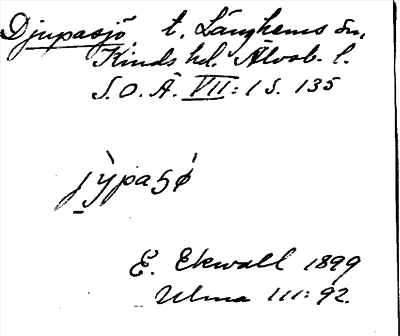 Djupasjö t. Länghems sn,
Kinds hd. Älvsb. l.
S.O.Ä. VII:1 S. 135
E. Ekwall 1899
Ulma 111:92.